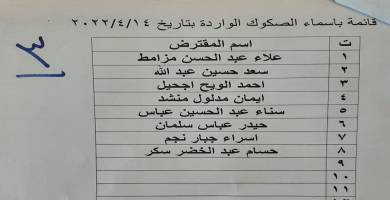 قائمة باسماء الصكوك الواردة بتاريخ ٢٠٢٢/٤/١٤
ت اسم المقترض
١ علاء عبد الحسن مزامط
٢ سعد حسين عبد الله
٣ احمد الويح اجحيل
٤ ايمان مدلول منشد
٥ سناء عبد الحسين عباس
٦ حيدر عباس سلمان
٧ اسراء جبار نجم
٨ حسام عبد الخضر سكر
٩
١٠
١١